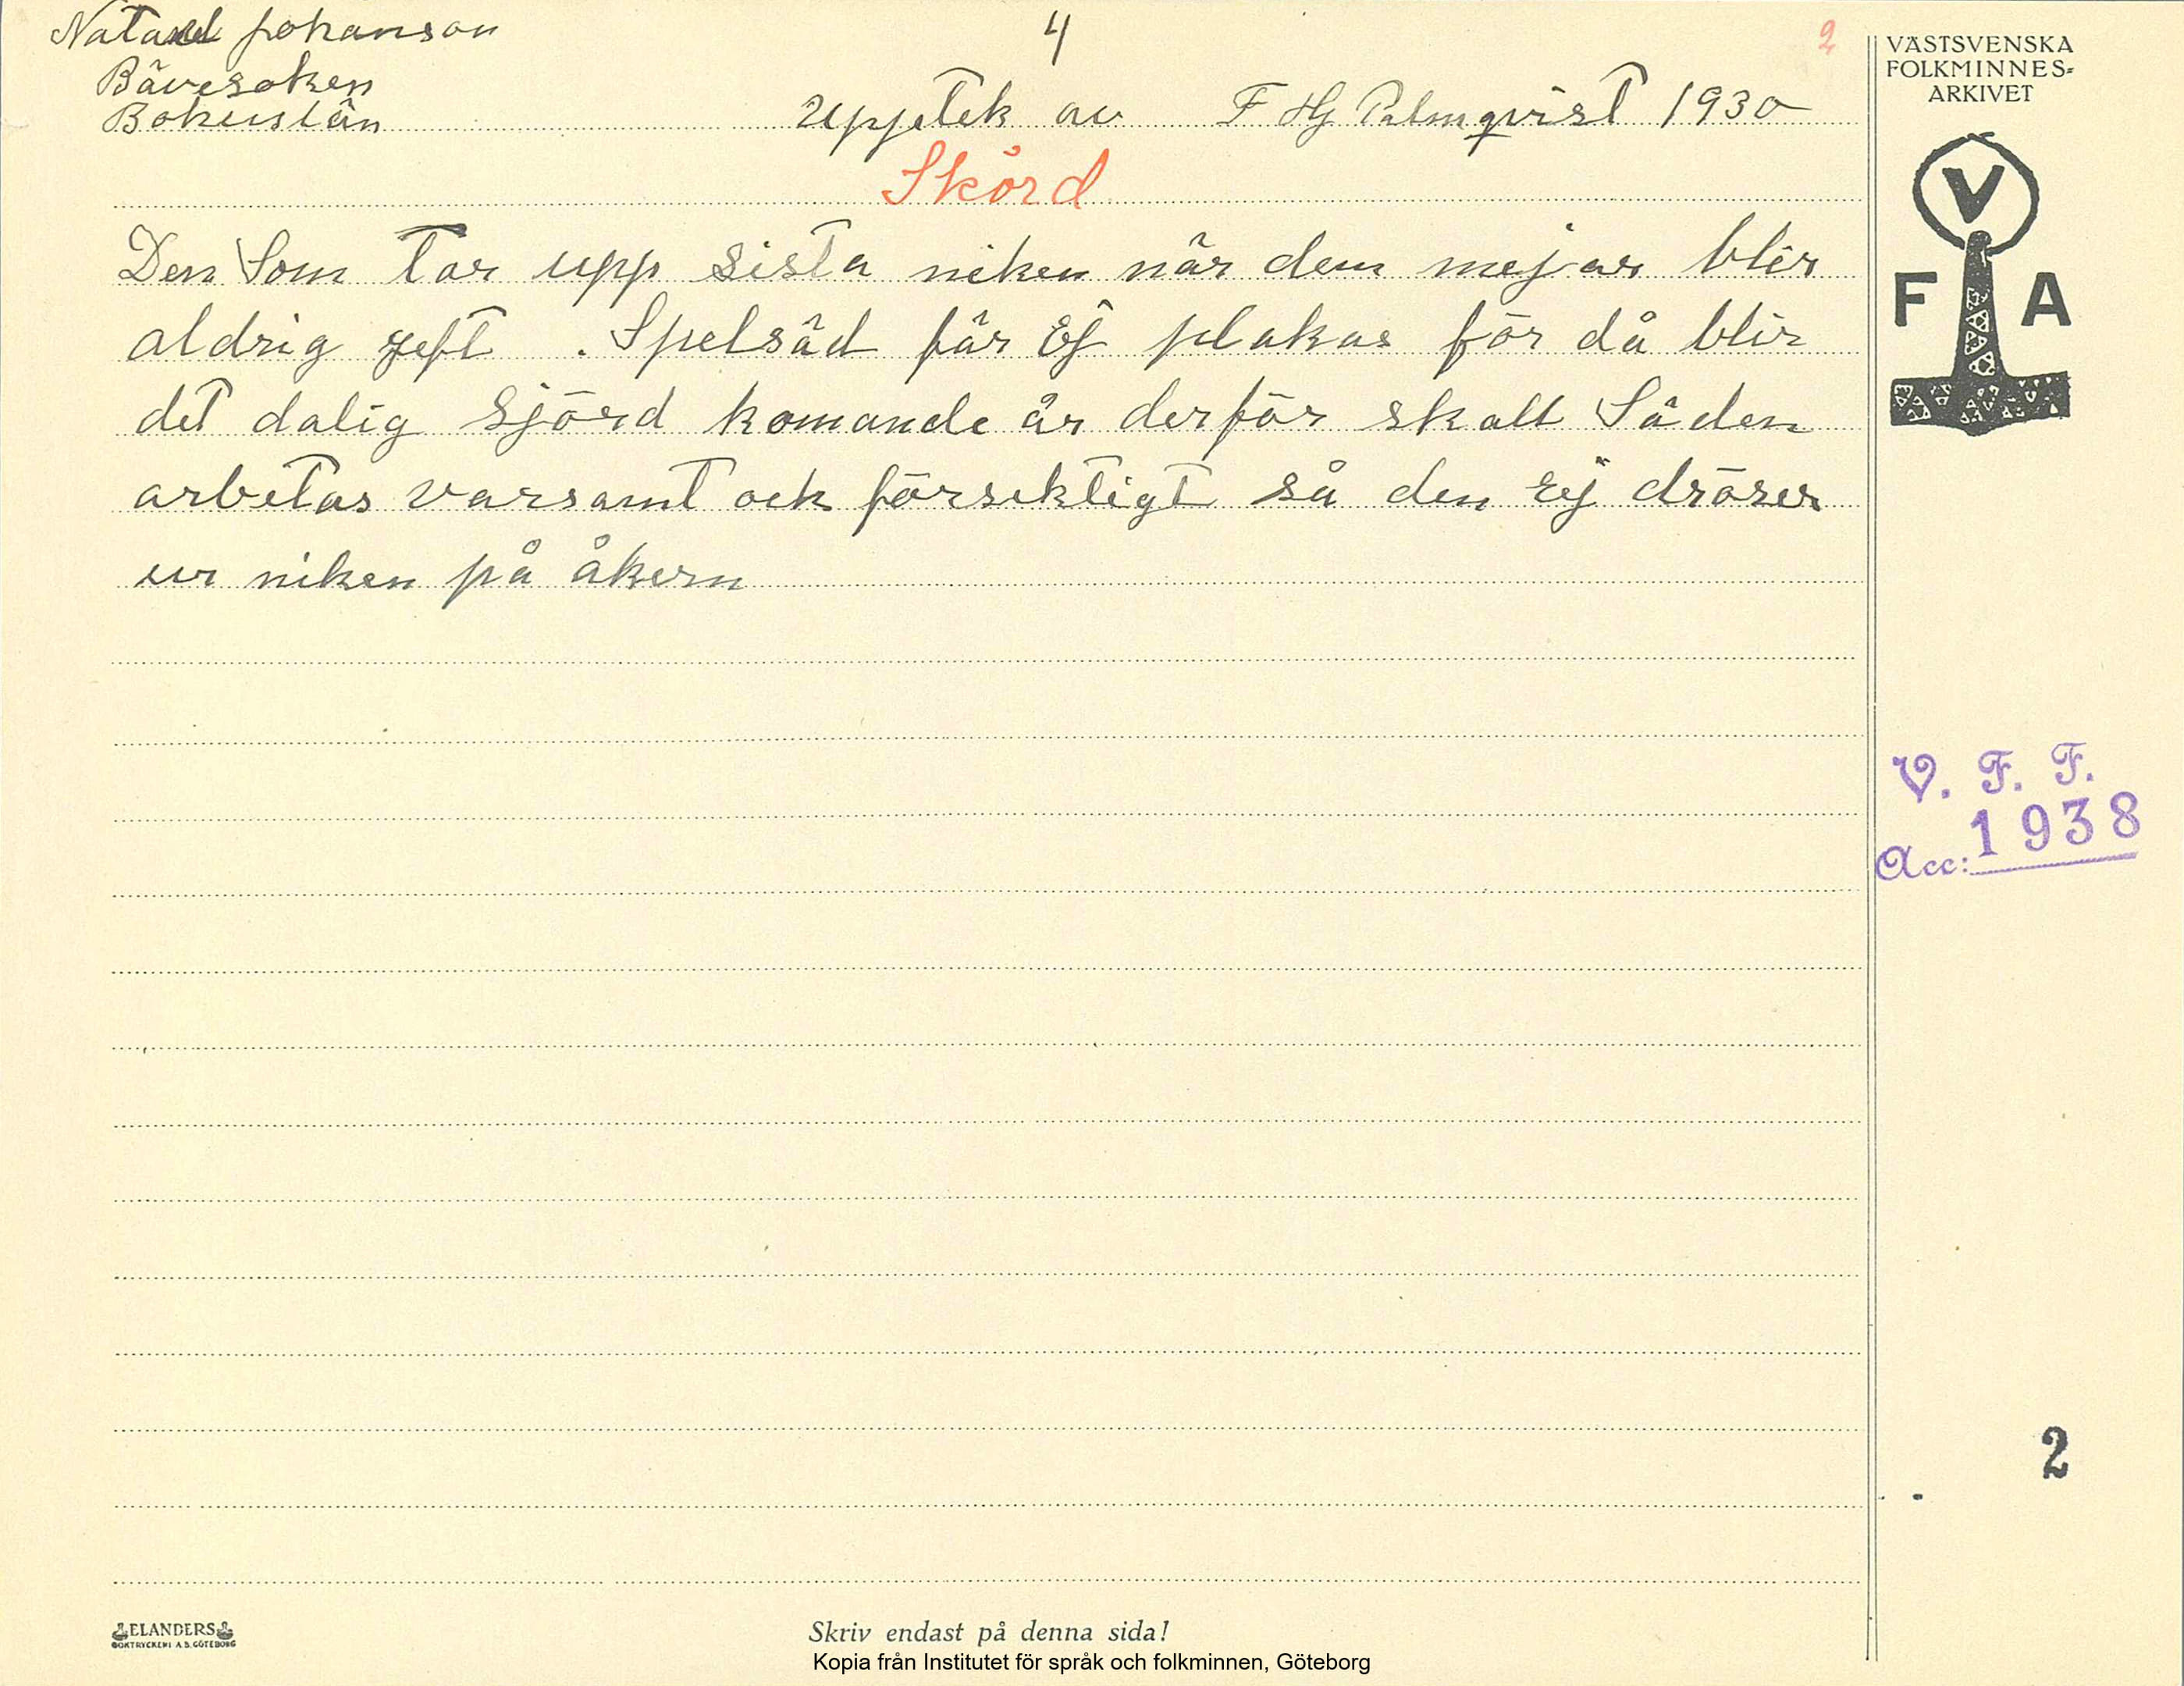 Natael Johanson
4
2
Bävesoken
Bohuslän
Upptek av F Hj Palmqvist 1930
Skörd
Den Som tar upp sista neken när dem mejar blir
aldrig geft . Spelsäd får Ej plakas för då blir
det dalig Sjörd komande år derför skall Säden
arbetas varsamt ock försektigt så den Ej dröser
ur niken på åkern
VÄSTSVENSKA
FOLKMINNES=
ARKIVET
V
F A
V. F. F.
Acc: 1938
2
ELANDERS
BOKTRYCKERI A.B. GÖTEBORG
Skriv endast på denna sida!
Kopia från Institutet för språk och folkminnen, Göteborg